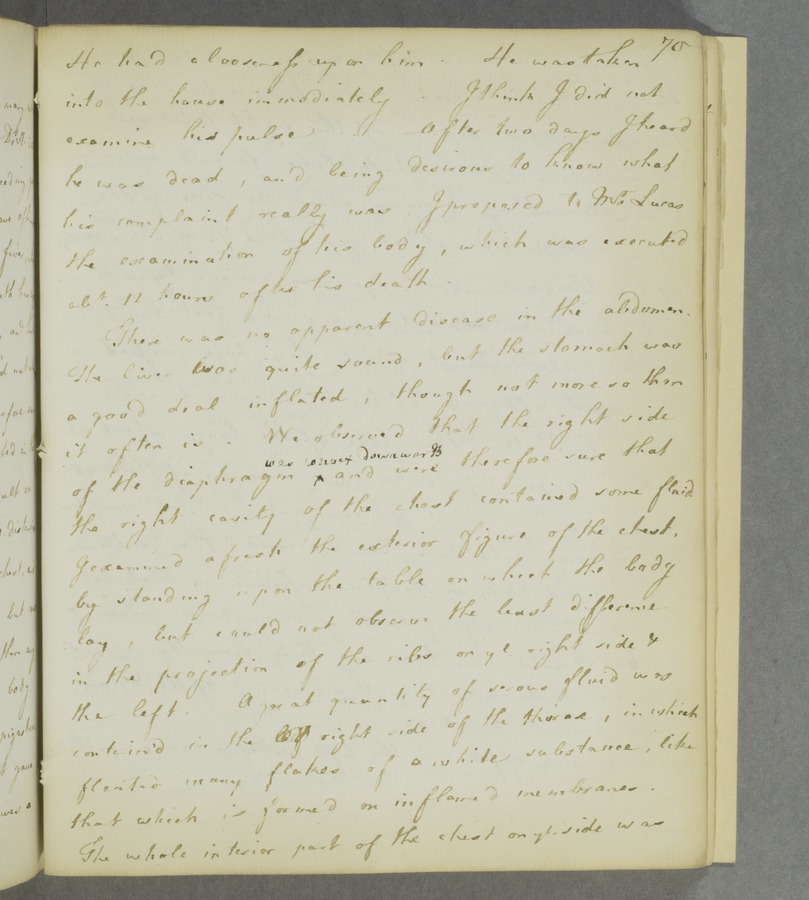 70
He had a looseness upon him. He was taken
into the house immediately. I think I did not
examine his pulse. After two days I heard
he was dead, and being desirous to know what
his complaint really was I proposed to Mr. Lucas
the examination of his body, which was executed
abt. 11 hours after his death.
There was no apparent disease in the abdomen.
The liver was quite sound, but the stomach was
a good deal inflated, though not more so than
it often is. We observed that the right side
was convex downwards
of the diaphragm ^ and were therefore sure that
the right cavity of the chest contained some fluid
I examined afresh the exterior figure of the chest,
by standing upon the table on which the body
lay, but could not observe the least difference
in the projection of the ribs on ye right side &
the left. A great quantity of serous fluid was
contein'd in the right side of the thorax, in which
floated many flakes of a white substance, like
that which is formed on inflamed membranes.
The whole interior part of the chest on yt. side was